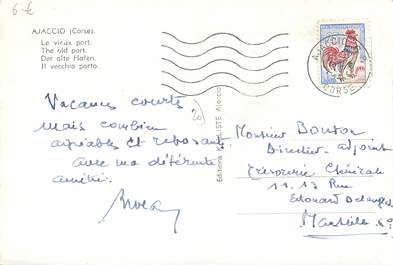 6 €
AJACCIO (Corse).
Le vieux port.
The old port.
Der alte Hafen.
Il vecchio porto.
AJACCIO
CORSE
Vacances courtes
mais combien
agréables et reposantes
avec ma déférente
amitié.
20
Editions Ajaccio
Monsieur Bouton
Directeur adjoint
Trésorerie Générale
11-13 Rue
Edouard Delanglade
Marseille 6e